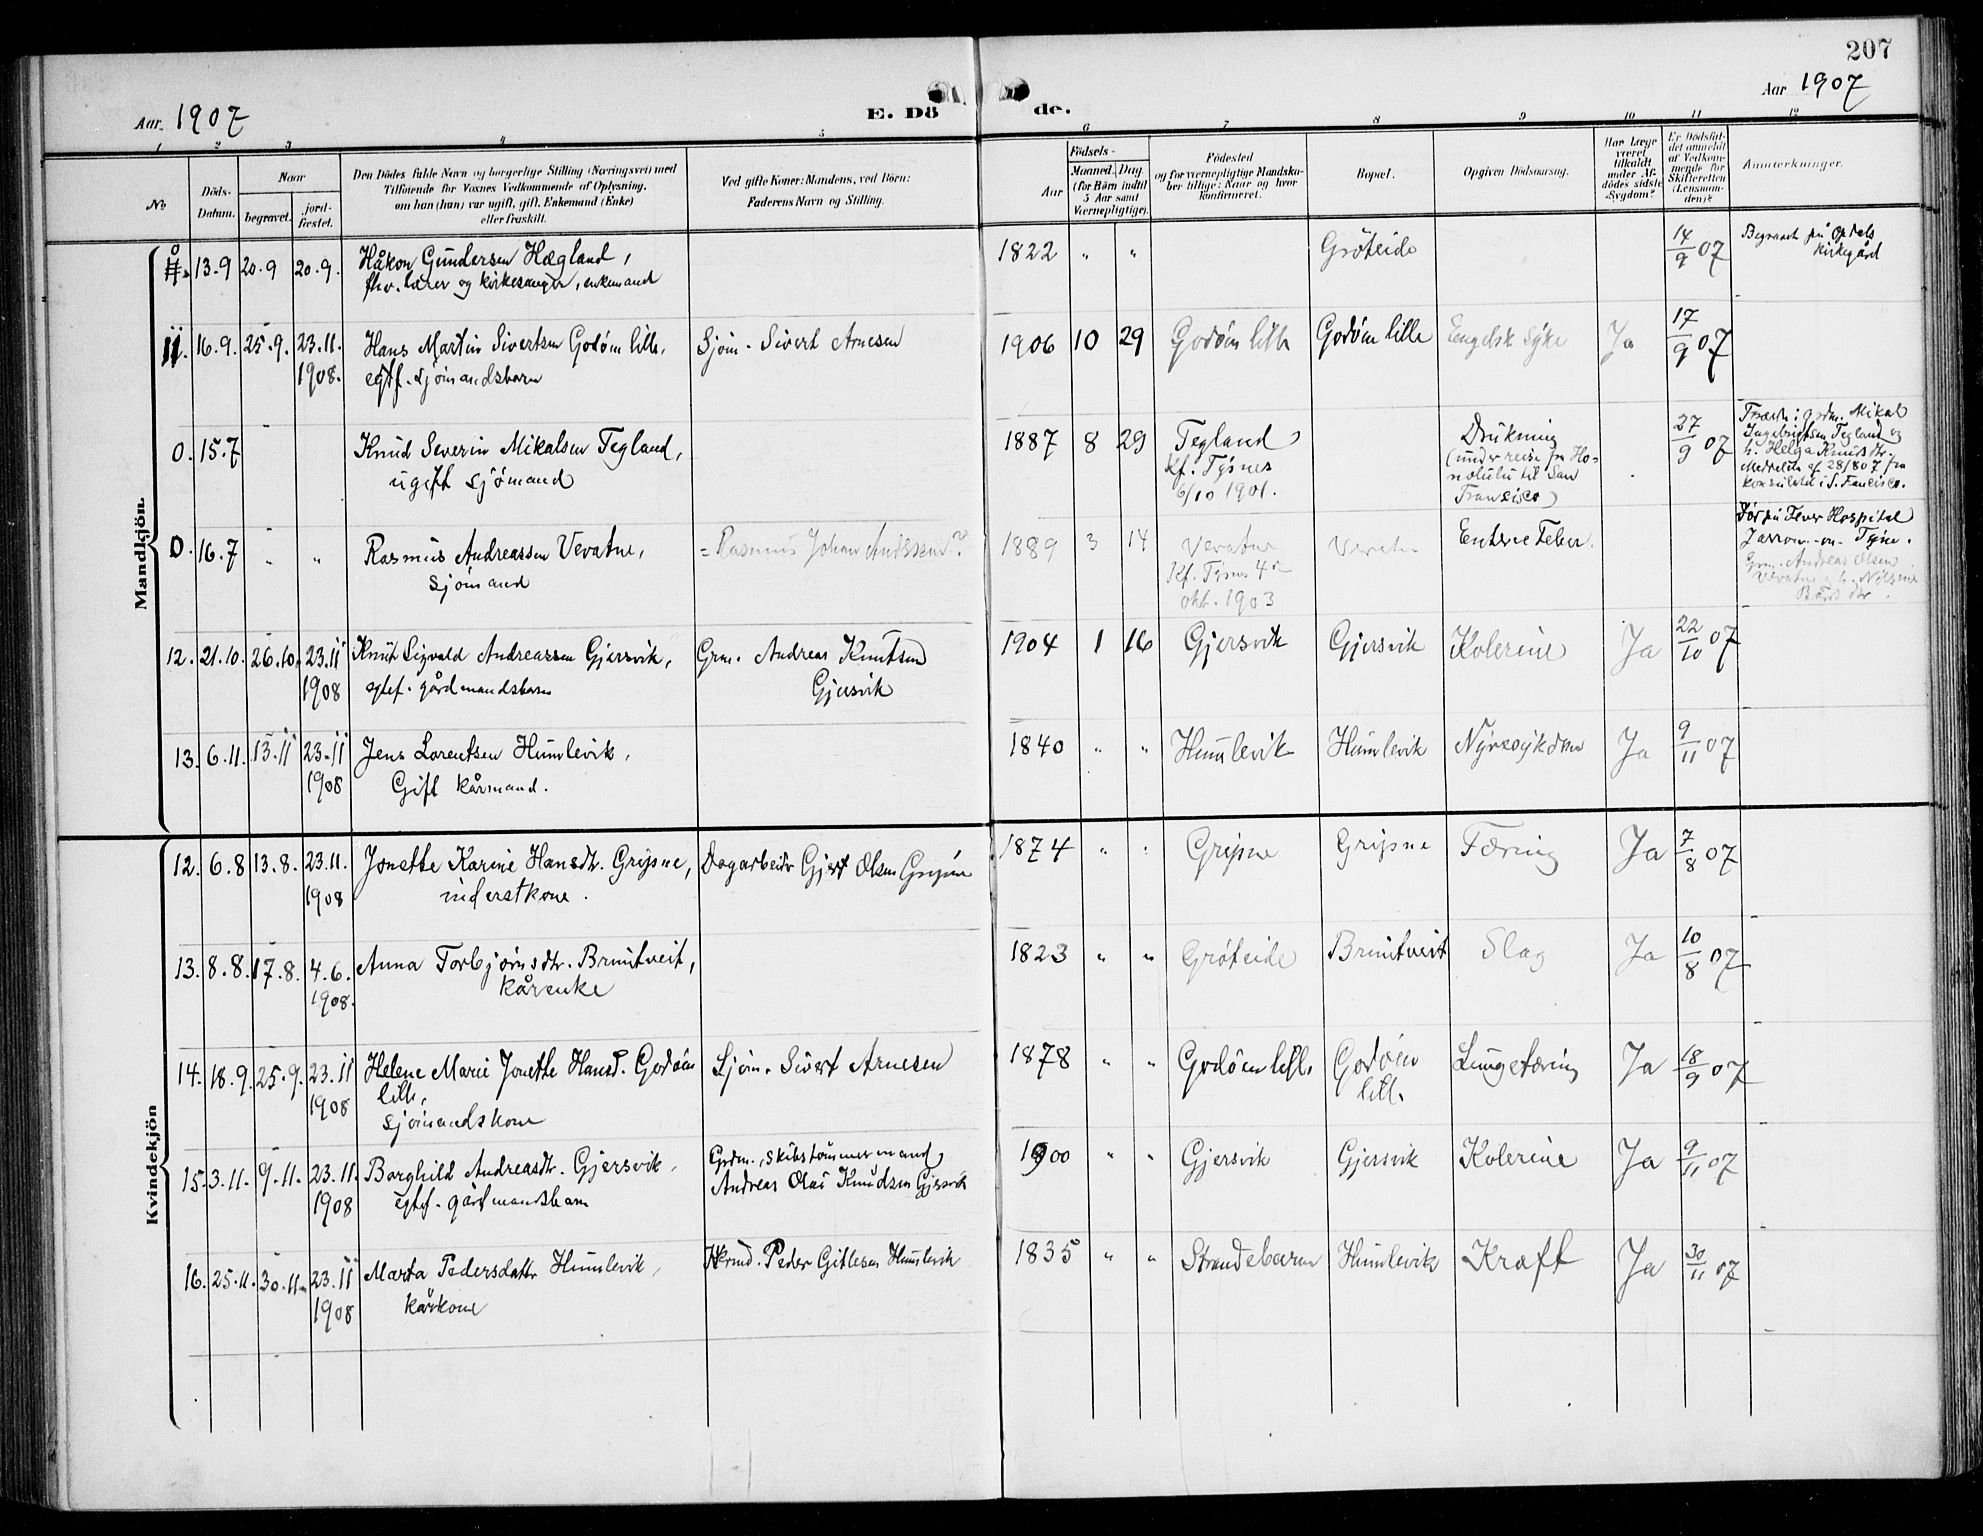 207
Aar 1907
E. Dö
de.
Aar 1907
1 2 3 4 5 6 7 8 9 10 11 12
No
Döds-
Datum.
Naar
begravet.
jord-
fæstet.
Den Dödes fulde Navn og borgerlige Stilling (Næringsvei) med
Tilföiende for Voxnes Vedkommende af Oplysning,
om han (hun) var ugift, gift, Enkemand (Enke)
eller fraskilt.
Ved gifte Koner: Mandens, ved Börn:
Faderens Navn og Stilling.
Födsels-
Aar
Maaned. Dag.
(for Börn indtil
5 Aar samt
Værnepligtige).
Födested
og for værnepligtige Mandska-
ber tillige: Naar og hvor
konfirmeret.
Bopæl.
Opgiven Dödsaarsag.
Har Læge
været
tilkaldt
under Af-
dödes sidste
Sygdom?
Er Dödsfal-
det anmeldt
af Vedkom-
mende for
Skifteretten
(Lensman-
den)?
Anmærkninger.
Mandkjön.
13.9 20.9 20.9. Håkon Gundersen Hægland,
fhv. lærer og kirkesanger, enkemand
1822 " " Grøteide 14/9 07 Begravet på Opdals
kirkegård
11. 16.9. 25.9. 23.11.
1908. Hans Martin Sivertsen Godøen lille,
egtf. sjømandsbarn
Sjøm. Sivert Arnesen
1906 10 29 Godøen lille Godøen lille Engelsk syke Ja 17/9 07
0. 15.7 Knud Severin Mikalsen Tegland,
ugift sjømand
1887 8 29 Tegland,
Kf. Tysnes
6/10 1901.
Drukning
(under reise fra Ho-
nolulu til San
Francisco)
27/9 07
Forældre: grdm. Mikal
Ingebrigtsen Tegland og
h. Helga Knudsdtr.
Meddelelse af 28/8 07 fra
konsulatet i S. Fancisco.
0. 16.7 " " Rasmus Andreassen Vevatne,
sjømand
= Rasmus Johan Andressen?
1889 3 14 Vevatne
Kf. Tysnes 4de
okt. 1903
Vevatne Enteric Feber
Død på Fever Hospital
Jarrow-on-Tyne.
Grm. Andreas Olsen
Vevatne og h.
12. 21.10. 26.10. 23.11
1908 Knut Sigvald Andreassen Gjersvik,
egtef. gårdmandsbarn
Grm. Andreas Knutsen
Gjersvik
1904 1 16 Gjersvik Gjersvik Kolerine Ja 22/10 07
13. 6.11. 13.11 23.11
1908 Jens Lorentsen Humlevik,
Gift kårmand.
1840 " " Humlevik Humlevik Nyresykdom Ja 9/11 07
Kvindekjön
12. 6.8 13.8. 23.11.
1908 Jonette Karine Hansdtr. Gripne,
inderstkone.
Dagarbeider Gjert Olsen Gripne
1874 " " Gripne Gripne Tæring Ja 7/8 07
13. 8.8. 17.8. 4.6.
1908. Anna Torbjørnsdtr. Bruntveit,
kårenke
1823 " " Grøteide Bruntveit Slag Ja 10/8 07
14. 18.9. 25.9. 23.11
1908 Helene Marie Jonette Hansd. Godøen
lille,
sjømandskone
Sjøm. Sivert Arnesen
1878 " " Godøen lille Godøen
lille Lungetæring Ja 18/9 07
15. 3.11. 9.11. 23.11.
1908 Borghild Andreasdtr. Gjersvik,
egtef. gårdmandsbarn
Grdm., skibstømmermand,
Andreas Olai Knudsen Gjersvik
1900 " " Gjersvik Gjersvik Kolerine Ja 9/11 07
16. 25.11. 30.11. 23.11
1908 Marta Pedersdatter Humlevik,
kårkone
Peder Gitlesen Humlevik
1835 " " Strandebarm Humlevik Kræft Ja 30/11 07